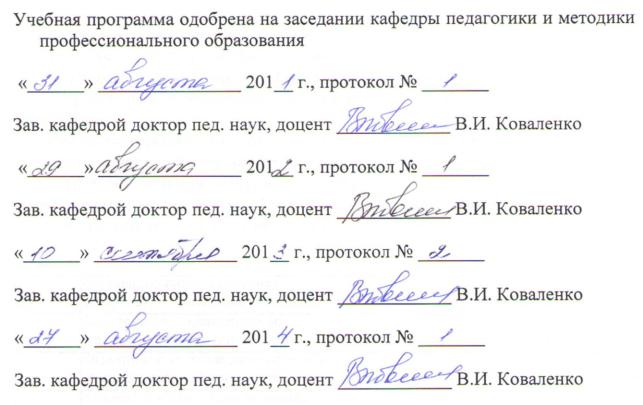 Учебная программа одобрена на заседании кафедры педагогики и методики
профессионального образования
«31» августа 2011 г., протокол № 1
Зав. кафедрой доктор пед. наук, доцент В.И. Коваленко
«29» августа 2012 г., протокол № 1
Зав. кафедрой доктор пед. наук, доцент В.И. Коваленко
«10» сентября 2013 г., протокол № 2
Зав. кафедрой доктор пед. наук, доцент В.И. Коваленко
«27» августа 2014 г., протокол № 1
Зав. кафедрой доктор пед. наук, доцент В.И. Коваленко